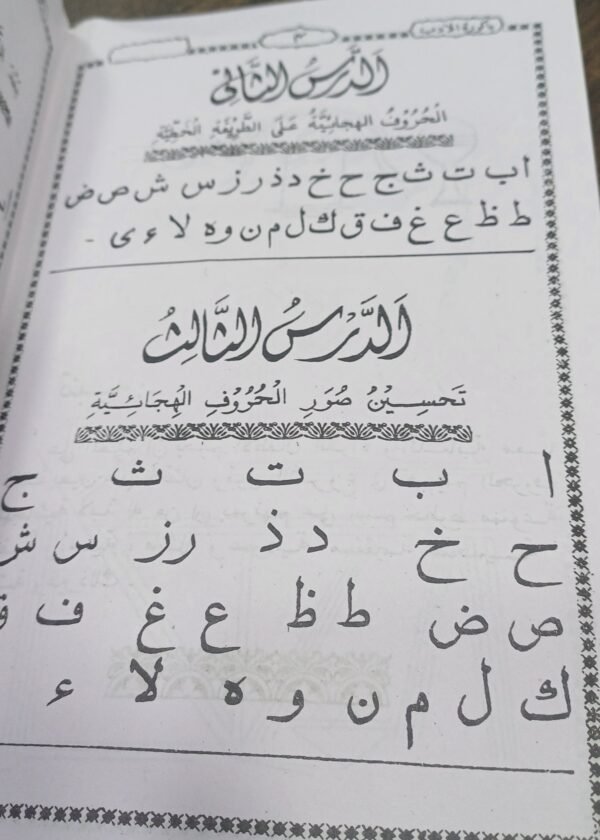 ٣
اَلدَّرْسُ الثَّانِيْ
الْحُرُوْفُ الْهِجَائِيَّةُ عَلَى الطَّرِيْقَةِ الْخَطِّيَّةِ
ا ب ت ث ج ح خ د ذ ر ز س ش ص ض
ط ظ ع غ ف ق ك ل م ن و ه لا ء ى -
اَلدَّرْسُ الثَّالِثُ
تَحْسِيْنُ صُوَرِ الْحُرُوْفِ الْهِجَائِيَّةِ
ا ب ت ث ج
ح خ د ذ ر ز س ش
ص ض ط ظ ع غ ف ق
ك ل م ن و ه لا ء